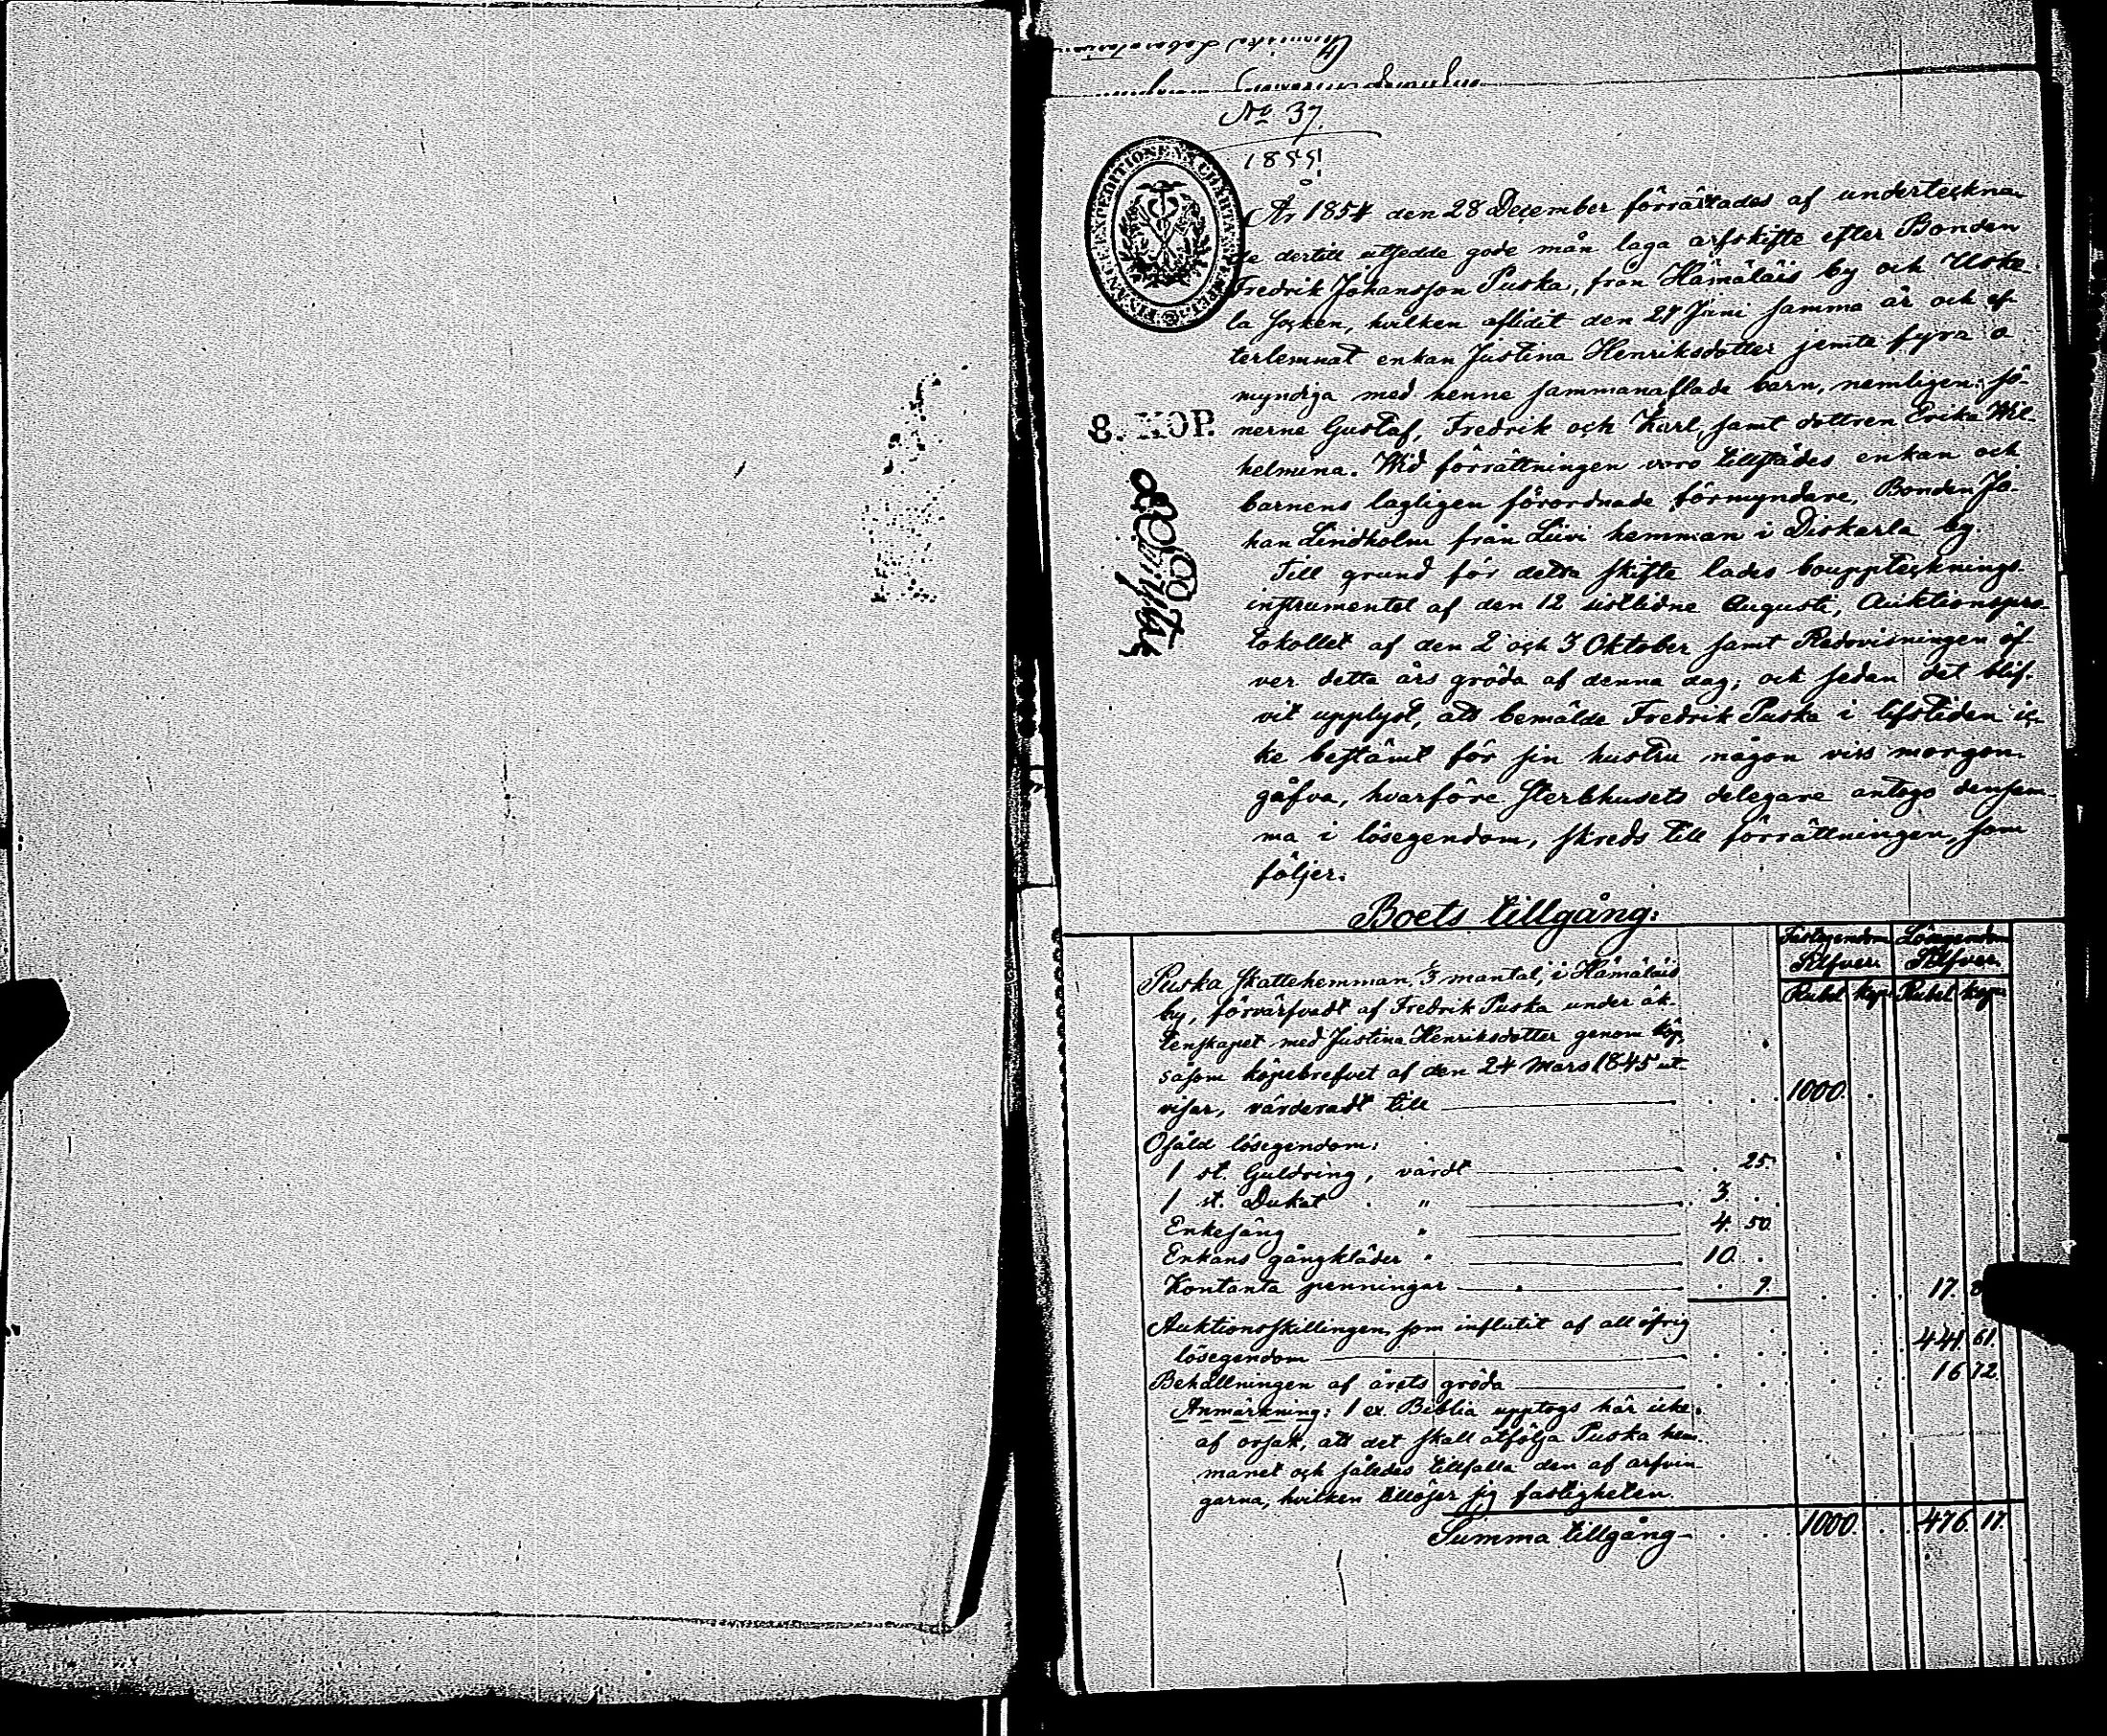 No 37.
1855.
FINANCE EXPEDITIONENS CHARTÆ STEMPEL
År 1854 den 28 December förrättades af underteckna-
de dertill utsedde gode män laga arfskifte efter Bonden
Fredrik Johansson Puska, från Hämäläis by och Uske-
la socken, hvilken aflidit den 27 Juni samma år och ef-
terlemnat enkan Justina Henriksdotter jemte fyra o-
myndiga med henne sammanaflade barn, nemligen: sö-
8. KOP. nerne Gustaf, Fredrik och Karl, samt dottren Erika Wil-
helmina. Wid förrättningen voro tillstädes enkan och
barnens lagligen förordnade förmyndare, Bonden Jo-
han Lindholm från Liivi hemman i Diskarla by.
Till grund för detta skifte lades bouppteknings
instrumentet af den 12 sistlidne Augusti, Auktionspro-
tokollet af den 2 och 3 Oktober samt Redovisningen öf-
ver detta års gröda af denna dag; och sedan det blif-
vit upplyst, att bemälde Fredrik Puska i lifstiden ic-
ke bestämt för sin hustru någon viss morgon-
gåfva, hvarföre Sterbhusets delegare antogo densam-
ma i lösegendom, skreds till förrättningen, som
följer:
Boets tillgång:
Fastegendom Lösegendom
Silfver. Silfver.
Rubel kop. Rubel kop.
Puska Skattehemman, 1/3 mantal, i Hämäläis
by, förvärfvadt af Fredrik Puska under äk-
tenskapet med Justina Henriksdotter genom köp,
såsom köpebrefvet af den 24 Mars 1845 ut-
visar, värderadt till 1000.
Osåld lösegendom:
1 st. Guldring, värdt 25.
1 st. Dukat " 3.
Enkesäng " 4. 50.
Enkans gångkläder " 10.
Kontanta penningar 9. 17.
Auktionsskillingen, som influtit af all öfrig
lösegendom 441. 61.
Behållningen af årets gröda 16 72.
Anmärkning: 1 ex. Biblia upptogs här icke
af orsak, att det skall åtfölja Puska hem-
manet och således tillfalla den af arfvin-
garna, hvilken tillöser sig fastigheten.
Summa tillgång 1000. 476. 17.